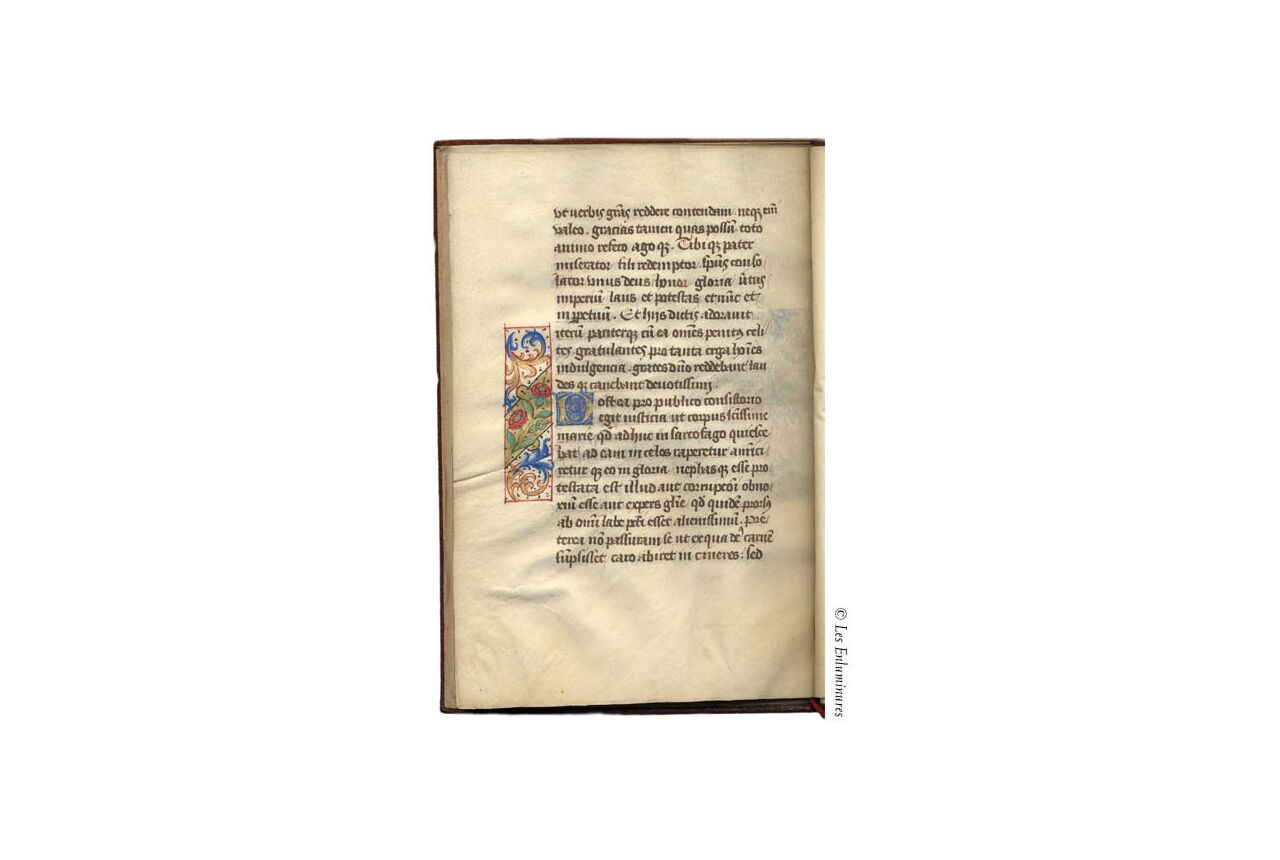 ut verbis gr̃as reddere contendam neqꝫ em̃
valeo . gracias tamen quas possũ toto
animo refero ago qꝫ . Tibi qꝫ pater
miserator / fili redemptor / sp̃us conso
lator vnus deus / honor gloria ṽtus
imperiũ / laus et potestas et nũc et
in ꝑpetuũ . Et hijs dictis adorauit
iterũ pariterqꝫ cũ ea om̃es penitꝰ celi
tes gratulantes pro tanta erga hoĩes
indulgencia . grates dño reddebant lau
des qꝫ canebant deuotissimi
Postea pro publico consistorio
egit iusticia ut corpus sc̃issime
marie qđ adhuc in sarcofago quiesce
bat ad eam in celos raperetur amici
retur qꝫ eo in gloria / nephas qꝫ esse pro
testata est illud aut corrupcõi obno
xiũ esse aut expers gl̃ie qđ quidẽ prorsꝰ
ab om̃i labe pcc̃i esset alienissimũ . Pre
terea nõ passuram se ut ex qua deꝰ carnẽ
sũpsisset caro abiret in cineres : sed
© Les Enluminures